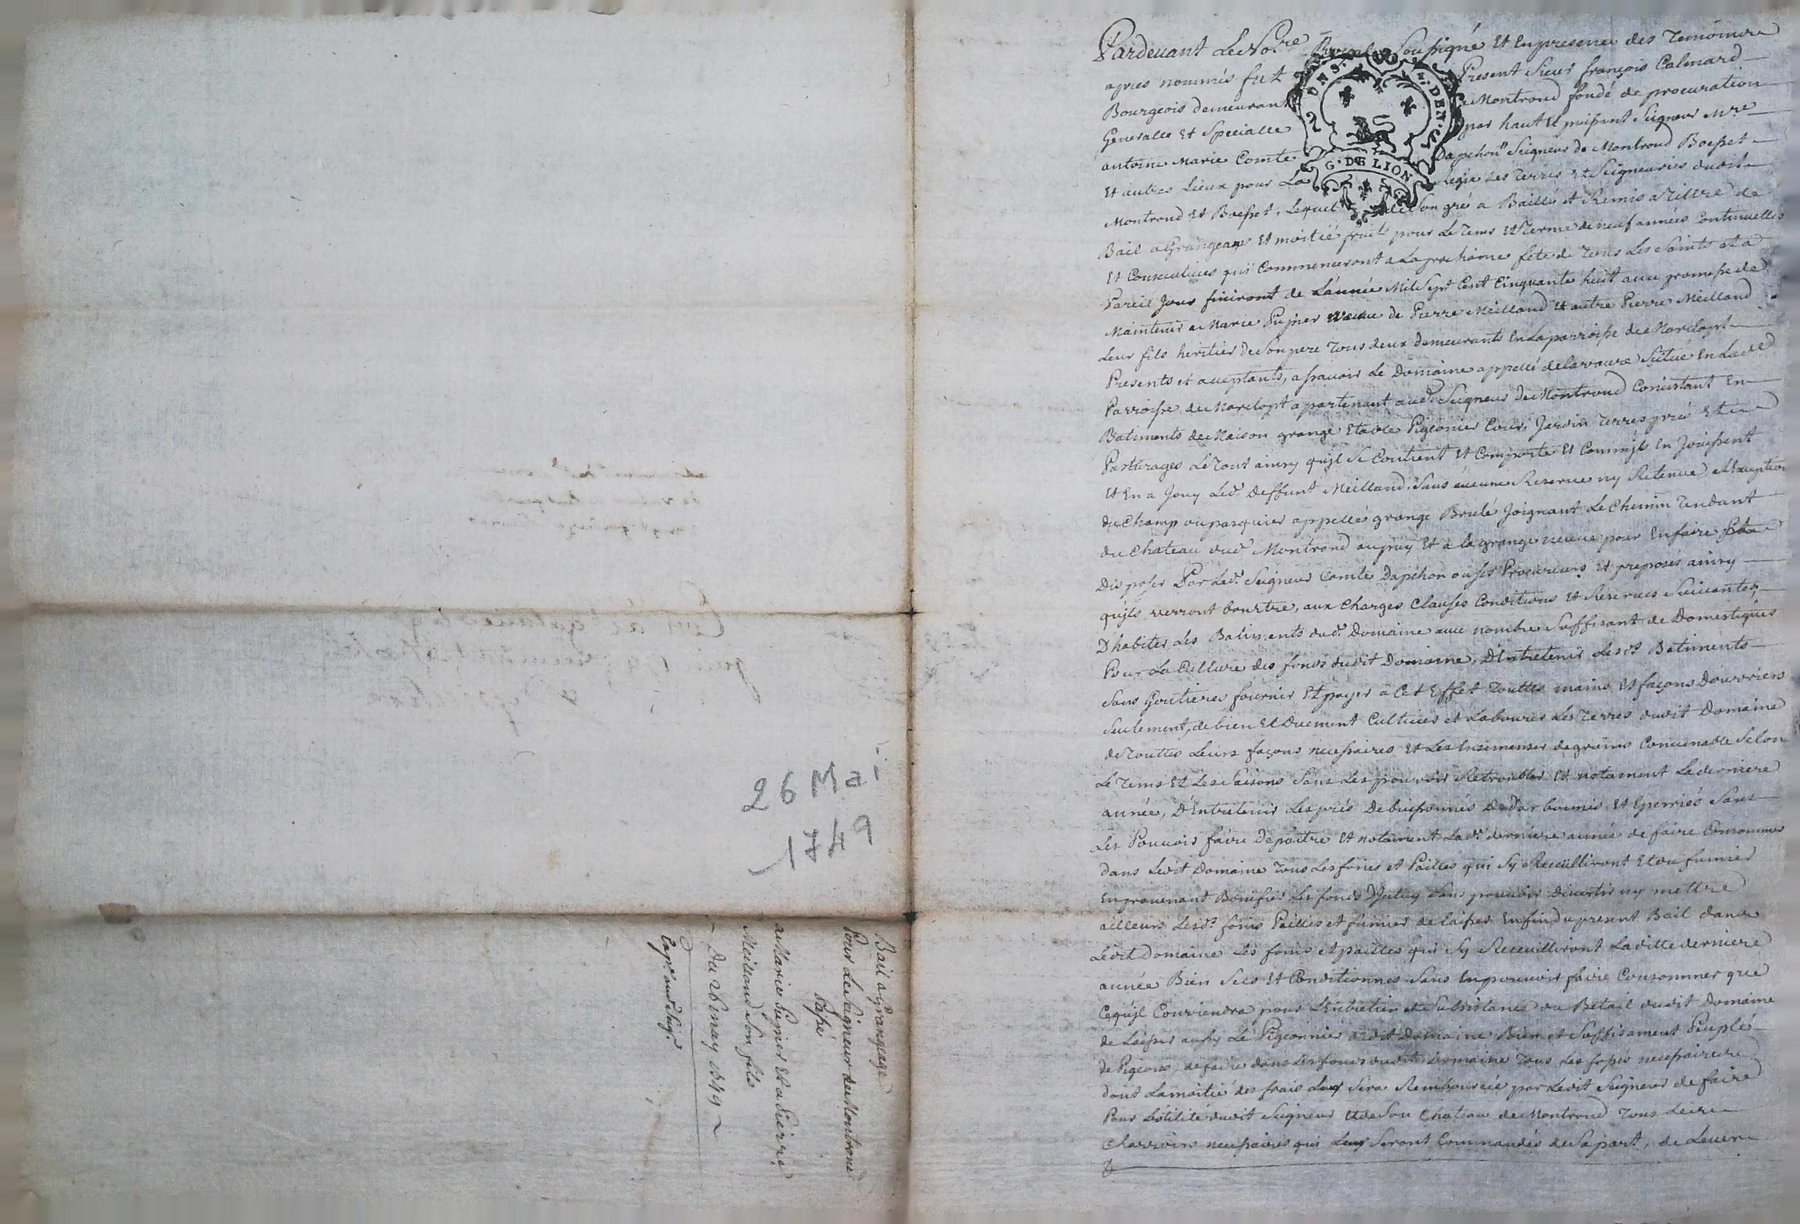 Pardevant Le No.re Royal Soussigné Et En presence des Temoins
apres nommés fut Present Sieur françois Calmard
Bourgeois demeurant a Montrond fondé de procuration
Generalle Et Specialle par haut Et puissant Seigneur Mre
antoine Marie Comte Dapchon Seigneur de Montrond Boesset
Et autres Lieux pour La Regie des Terres et Seigneuries dudit
Montrond Et Boesset, Lequel de Son gré a Baillé et Remis a Tiltre de
Bail a Grangeage Et moitié fruits pour Le Tems Et Terme de neuf années Continuelles
Et Consecutives qui Commenceront a La prochaine fête de Tous Les Saints et a
Pareil Jour finiront de L'année Mil Sept Cent Cinquante huit avec promesse de
Maintenir a Marie veuve de Pierre Meilland Et autre Pierre Meilland
Leur fils heritier de Son pere Tous deux demeurants En La parroisse de Marclopt
Presents et acceptants, a sçavoir Le Domaine appellé delavaure Scitué En Lad.e
Parroisse de Marclopt apartenant aud. Seigneur De Montrond Consistant En
Batiments de Maison grange Etable Pigeonier Cour, Jardin Terres prés Et
Pasturages Le Tout ainsy qu'jl Se Contient Et Comporte Et Comme jls En Jouissent
Et En a Jouy Led. deffunt Meilland Sans aucune Reserve ny Retenue a L'Exception
du Champ ou pasquier appellé grange Brulé Joignant Le Chemin Tendant
du Chateau dud. Montrond au puy Et a la grange neuve pour En faire Et
Disposer Par Led. Seigneur Comte Dapchon ou Ses Procureurs Et preposés ainsy
qu'jls verront bon Etre, aux Charges Clauses Conditions Et Reserves Suivantes,
D'habiter Les Batiments dud. Domaine avec nombre Suffisant de Domestiques
Pour La Culture des fonds dudit Domaine, D'Entretenir Lesd. Batiments
Sans Goutieres fournir Et payer a Cet Effet Touttes mains Et façons D'ouvriers
Seulement, de bien Et Duement Cultiver et Labourer Les Terres dudit Domaine
de Touttes Leurs façons necessaires Et Les Ensemenser de grains Convenable Selon
Le Tems Et Les Saisons Sans Les pouvoir Retroubler Et notament La derniere
année, D'Entretenir Les prés De buissonnés Et Sans
Les Pouvoir faire Depaitre Et notament Lad. derniere année de faire Consommer
dans Ledit Domaine Tous Les foins et Pailles qui Sy Recueilliront Et du fumier
En provenant Bonifier Les fonds D'Jceluy Sans pouvoir Divertir ny mettre
ailleurs Lesd. foins Pailles et fumier de Laisser En fin du present Bail dans
Ledit Domaine Les foins et pailles qui Sy Receuilliront Ladite derniere
année Bien Secs Et Conditionnés Sans En pouvoir faire Consommer que
Ce qu'jl Conviendra pour L'Entretien et Subsistance du Betail dudit Domaine
de Laisser aussy Le Pigeonnier dudit Domaine Bien et Suffisament Peuplé
de Pigeons, de faire dans Les fonds dudit Domaine Tous Les fossés necessaires
dont La moitié des frais Leur Sera Remboursée par Ledit Seigneur de faire
Pour L'utilité dudit Seigneur Et de Son Chateau de Montrond Tous Les
Charrois necessaires qui Leur Seront Commandés de Sa part, de Lever
G. DE LION
26 Mai
1749
Bail a Grangeage
Pour Le Seigneur de Montrond
Passé
a Marie Et a Pierre
Meilland Son fils
Du 26 may 1749